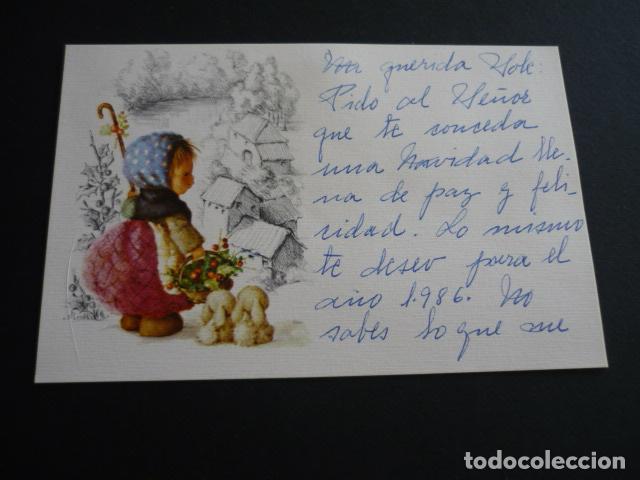 Mi querida Sole:
Pido al Señor
que te conceda
una Navidad lle-
na de paz y feli-
cidad. Lo mismo
te deseo para el
año 1.986. No
sabes lo que me
todocoleccion.net